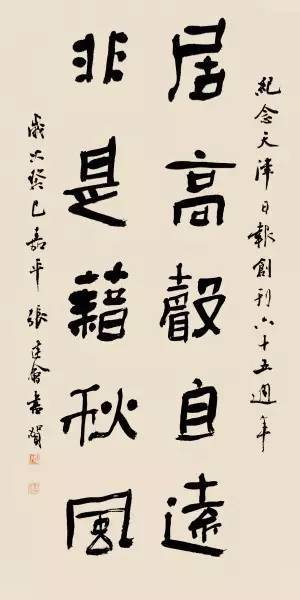 紀念天津日報創刊六十五週年
居高聲自遠
非是藉秋風
歲次癸巳嘉平張建會書賀